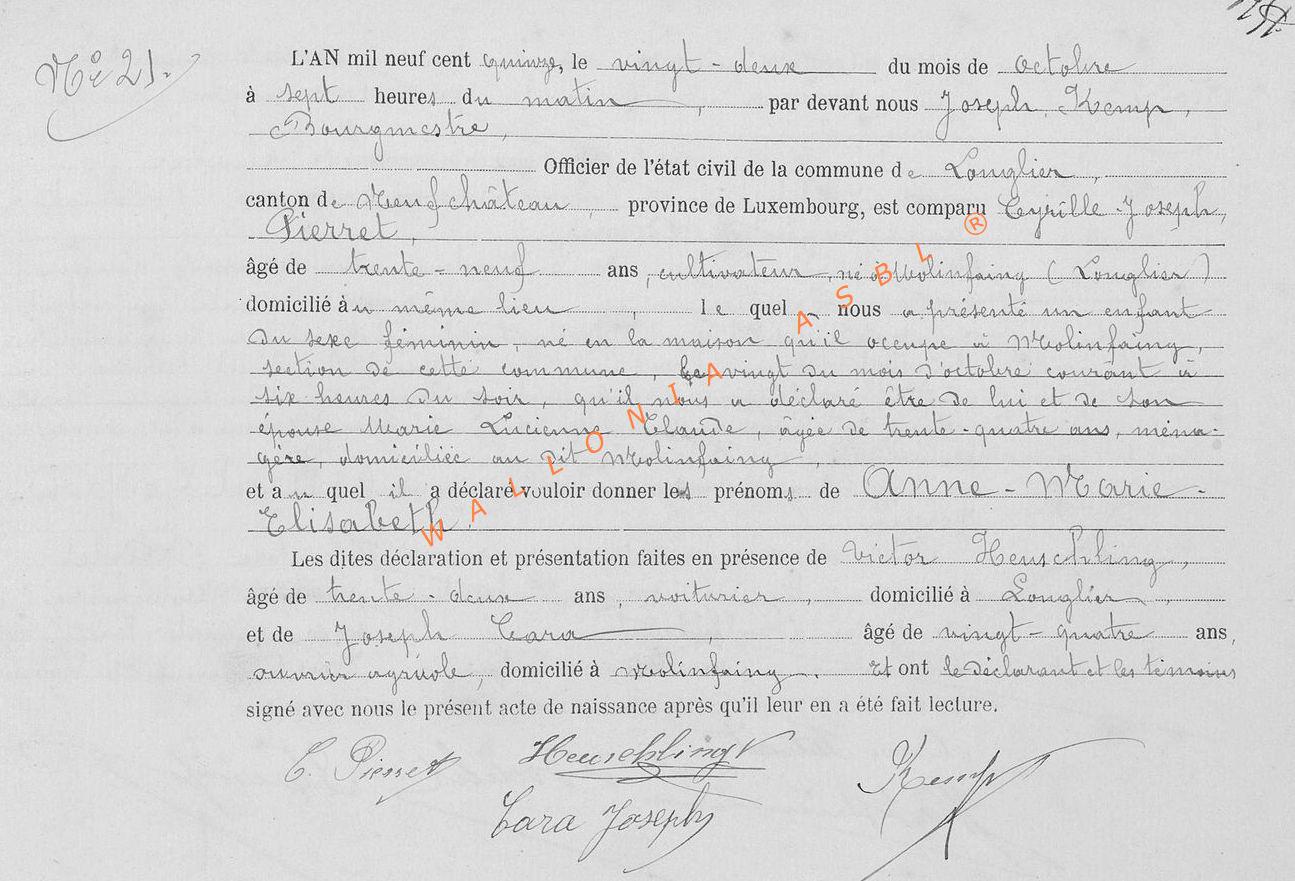 N° 21.
L'AN mil neuf cent quinze, le vingt-deux du mois de octobre
à sept heures du matin, par devant nous Joseph Kemp,
Bourgmestre,
Officier de l'état civil de la commune de Longlier,
canton de Neufchâteau, province de Luxembourg, est comparu Cyrille-Joseph,
Pierret,
âgé de trente-neuf ans, cultivateur, né à Molinfaing (Longlier)
domicilié au même lieu, le quel nous a présenté un enfant
du sexe féminin, né en la maison qu'il occupe à Molinfaing,
section de cette commune, le vingt du mois d'octobre courant à
six heures du soir, qu'il nous a déclaré être de lui et de son
épouse Marie Lucienne Claude, âgée de trente-quatre ans, ména-
gère, domiciliée au dit Molinfaing,
et au quel il a déclaré vouloir donner les prénoms de Anne-Marie-
Elisabeth.
Les dites déclaration et présentation faites en présence de Victor Heuschling,
âgé de trente-deux ans, voiturier, domicilié à Longlier,
et de Joseph Cara, âgé de vingt-quatre ans,
ouvrier agricole, domicilié à Molinfaing. Et ont le déclarant et les témoins
signé avec nous le présent acte de naissance après qu'il leur en a été fait lecture.
C. Pierret Heuschling V Kemp
Cara Joseph
WALLONIA ASBL ®